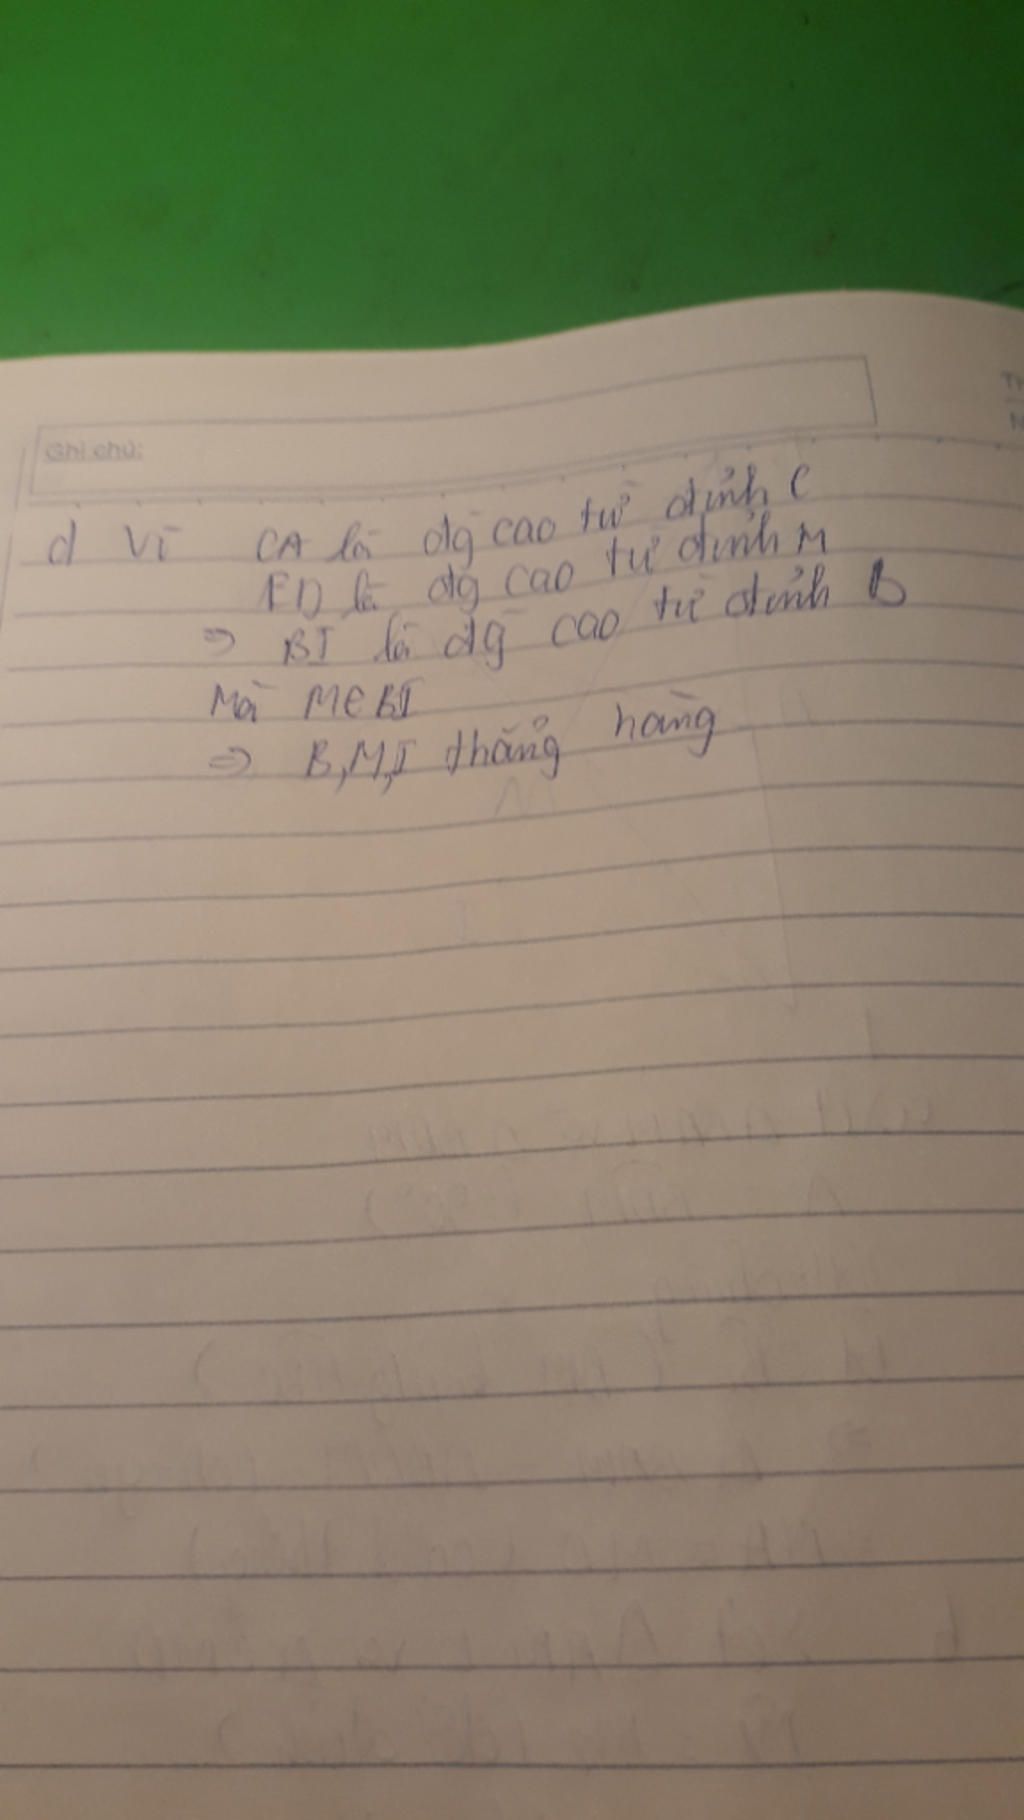 Ghi chú:
d Vì CA là đg cao từ đỉnh C
ED là đg cao từ đỉnh M
=> BI là đg cao từ đỉnh B
Mà M∈BI
=> B,M,I thẳng hàng